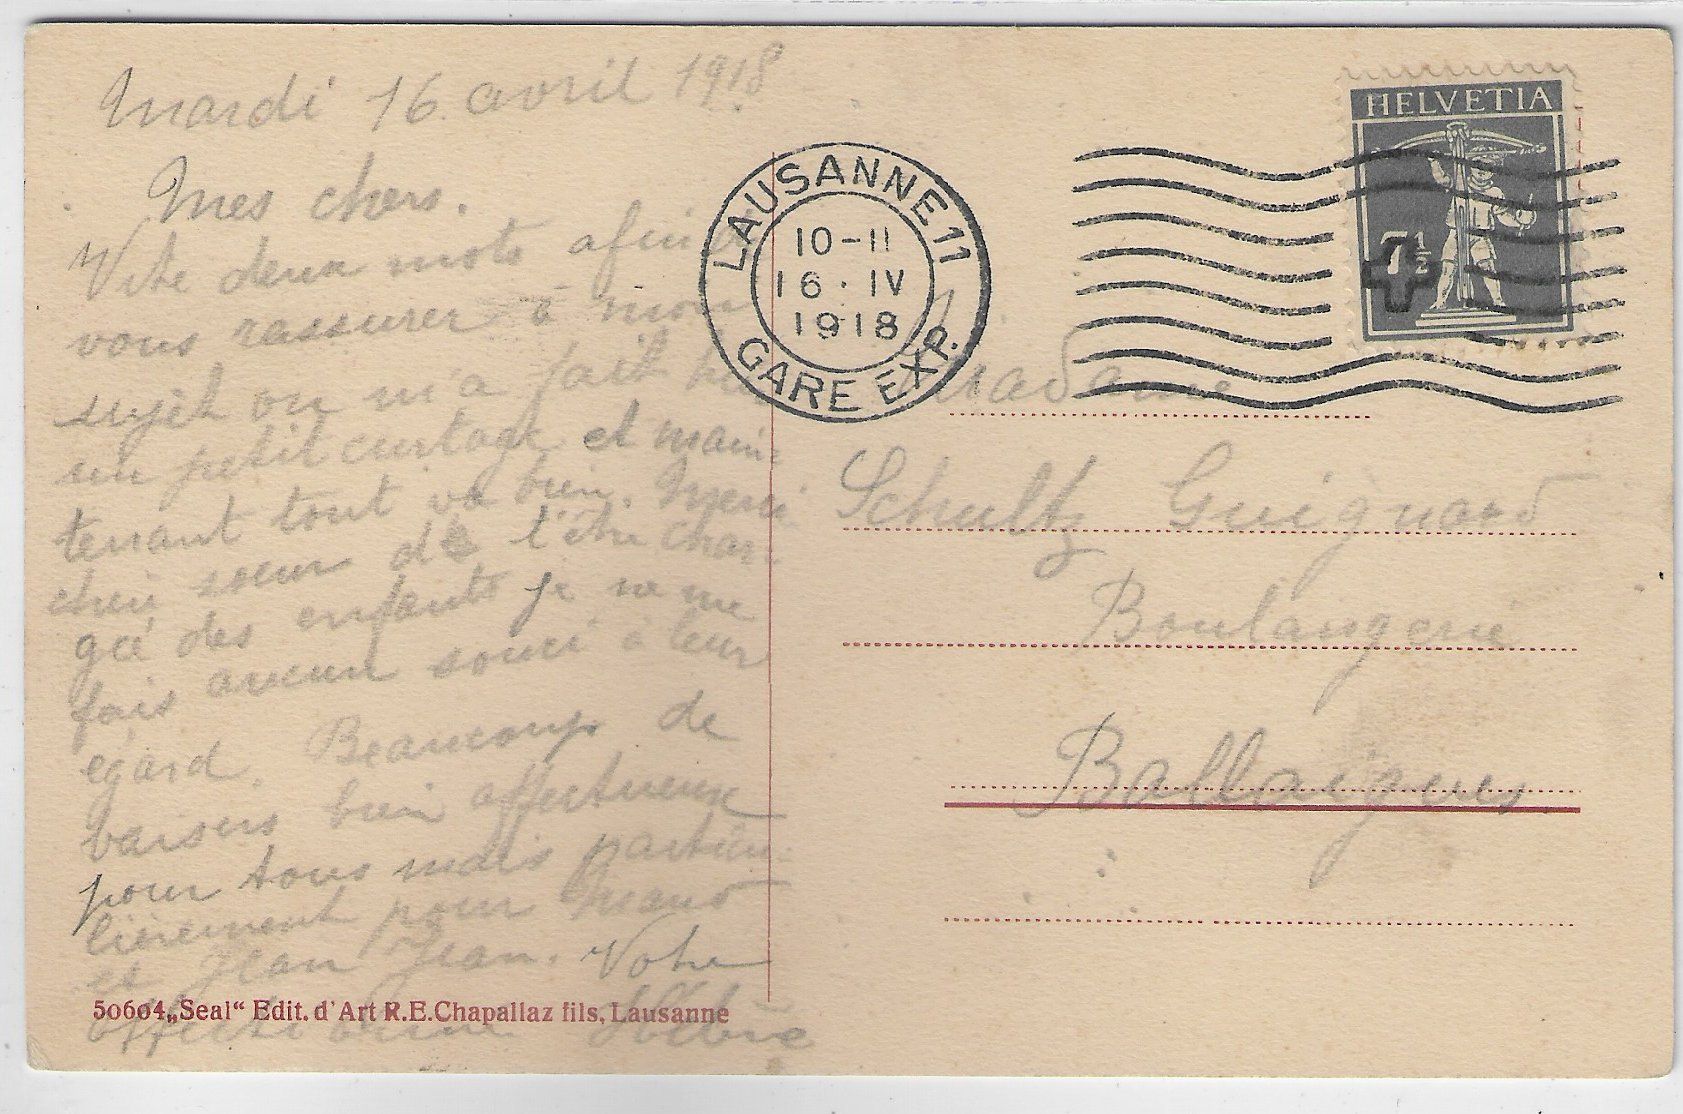 Mardi 16 avril 1918
Mes chers.
Vite deux mots afin de
vous rassurer à mon
sujet on m'a fait hier
un petit curtage et main-
tenant tout va bien. Merci
chère sœur de t'être char-
gée des enfants je ne me
fais aucun souci à leur
égard. Beaucoup de
baisers bien affectueux
pour tous mais particu-
lièrement pour Maud
et Jean Jean. Votre
50604 „Seal“ Edit. d'Art R.E. Chapallaz fils, Lausanne
LAUSANNE 11
10-11
16·IV
1918
GARE EXP.
HELVETIA
7½
Madame
Schultz Guignard
Boulangerie
Ballaigues